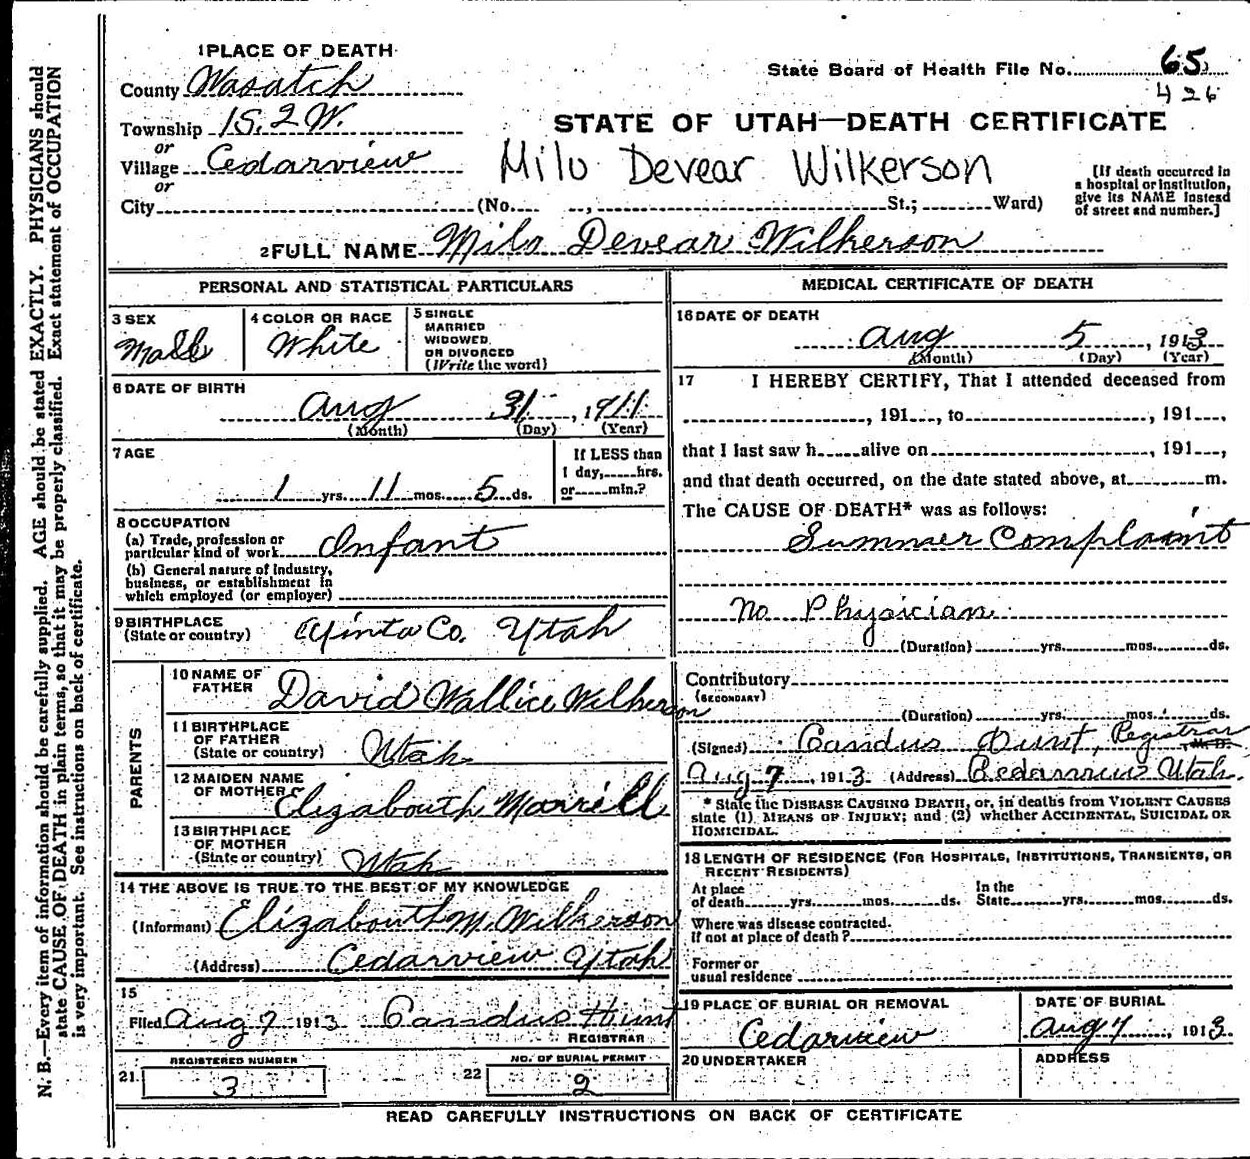 N. B.—Every item of information should be carefully supplied. AGE should be stated EXACTLY. PHYSICIANS should
state CAUSE OF DEATH in plain terms, so that it may be properly classified. Exact statement of OCCUPATION
is very important. See instructions on back of certificate.
1 PLACE OF DEATH
County Wasatch
State Board of Health File No. 65
426
Township 1S. 2 W.
or
STATE OF UTAH—DEATH CERTIFICATE
Village Cedarview
or
Milo Devear Wilkerson
City (No. , St.; Ward)
[If death occurred in
a hospital or institution,
give its NAME instead
of street and number.]
2 FULL NAME Milo Devear Wilkerson
PERSONAL AND STATISTICAL PARTICULARS
3 SEX
Male
4 COLOR OR RACE
White
5 SINGLE
MARRIED
WIDOWED
OR DIVORCED
(Write the word)
6 DATE OF BIRTH
Aug 31, 1911
(Month) (Day) (Year)
7 AGE
1 yrs. 11 mos. 5 ds.
If LESS than
1 day, hrs.
or min.?
8 OCCUPATION
(a) Trade, profession or
particular kind of work Infant
(b) General nature of industry,
business, or establishment in
which employed (or employer)
9 BIRTHPLACE
(State or country) Uinta Co. Utah
PARENTS
10 NAME OF
FATHER David Wallice Wilkerson
11 BIRTHPLACE
OF FATHER
(State or country) Utah
12 MAIDEN NAME
OF MOTHER Elizabouth Morrill
13 BIRTHPLACE
OF MOTHER
(State or country) Utah
14 THE ABOVE IS TRUE TO THE BEST OF MY KNOWLEDGE
(Informant) Elizabouth M. Wilkerson
(Address) Cedarview Utah
15
Filed Aug 7 1913 Candus Hunt
REGISTRAR
REGISTERED NUMBER
21. 3
NO. OF BURIAL PERMIT
22 2
MEDICAL CERTIFICATE OF DEATH
16 DATE OF DEATH
Aug 5, 1913
(Month) (Day) (Year)
17 I HEREBY CERTIFY, That I attended deceased from
, 191 , to , 191 ,
that I last saw h alive on , 191 ,
and that death occurred, on the date stated above, at m.
The CAUSE OF DEATH* was as follows:
Summer Complaint
No Physician
(Duration) yrs. mos. ds.
Contributory
(SECONDARY)
(Duration) yrs. mos. ds.
(Signed) Candus Hunt, Registrar
M. D.
Aug 7, 1913 (Address) Cedarview Utah.
* State the DISEASE CAUSING DEATH, or, in deaths from VIOLENT CAUSES
state (1) MEANS OF INJURY; and (2) whether ACCIDENTAL, SUICIDAL OR
HOMICIDAL.
18 LENGTH OF RESIDENCE (FOR HOSPITALS, INSTITUTIONS, TRANSIENTS, OR
RECENT RESIDENTS)
At place
of death yrs. mos. ds.
In the
State yrs. mos. ds.
Where was disease contracted.
If not at place of death?
Former or
usual residence
19 PLACE OF BURIAL OR REMOVAL
Cedarview
DATE OF BURIAL
Aug 7, 1913
20 UNDERTAKER
ADDRESS
READ CAREFULLY INSTRUCTIONS ON BACK OF CERTIFICATE